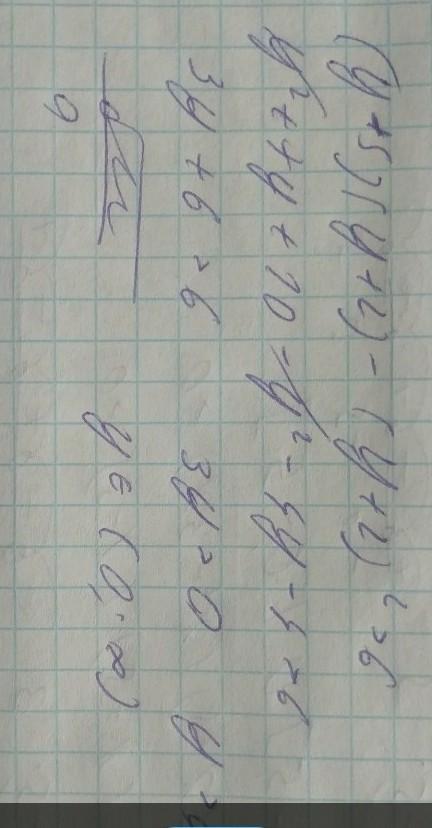 (y+5)(y+2) - (y+2)² > 6
y² + 7y + 10 - y² - 4y - 4 > 6
3y + 6 > 6 3y > 0 y >
0
y ∈ (0; ∞)